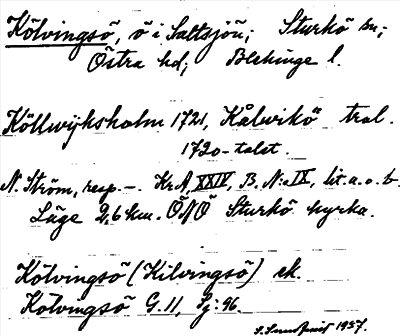 Kölvingsö, ö i Saltsjön; Sturkö sn;
Östra hd; Blekinge l.
Köllwijksholm 1721, Kålwikö trol.
1720-talet.
N. Ström, resp. -. Kr.A, XXIV, B. N:o IX, lit. a. o. b.
Läge 2,6 km. ÖNÖ Sturkö kyrka.
Kölvingsö (Kilvingsö) ek.
Kölvingsö G. 11, Sj: 96.
1937.